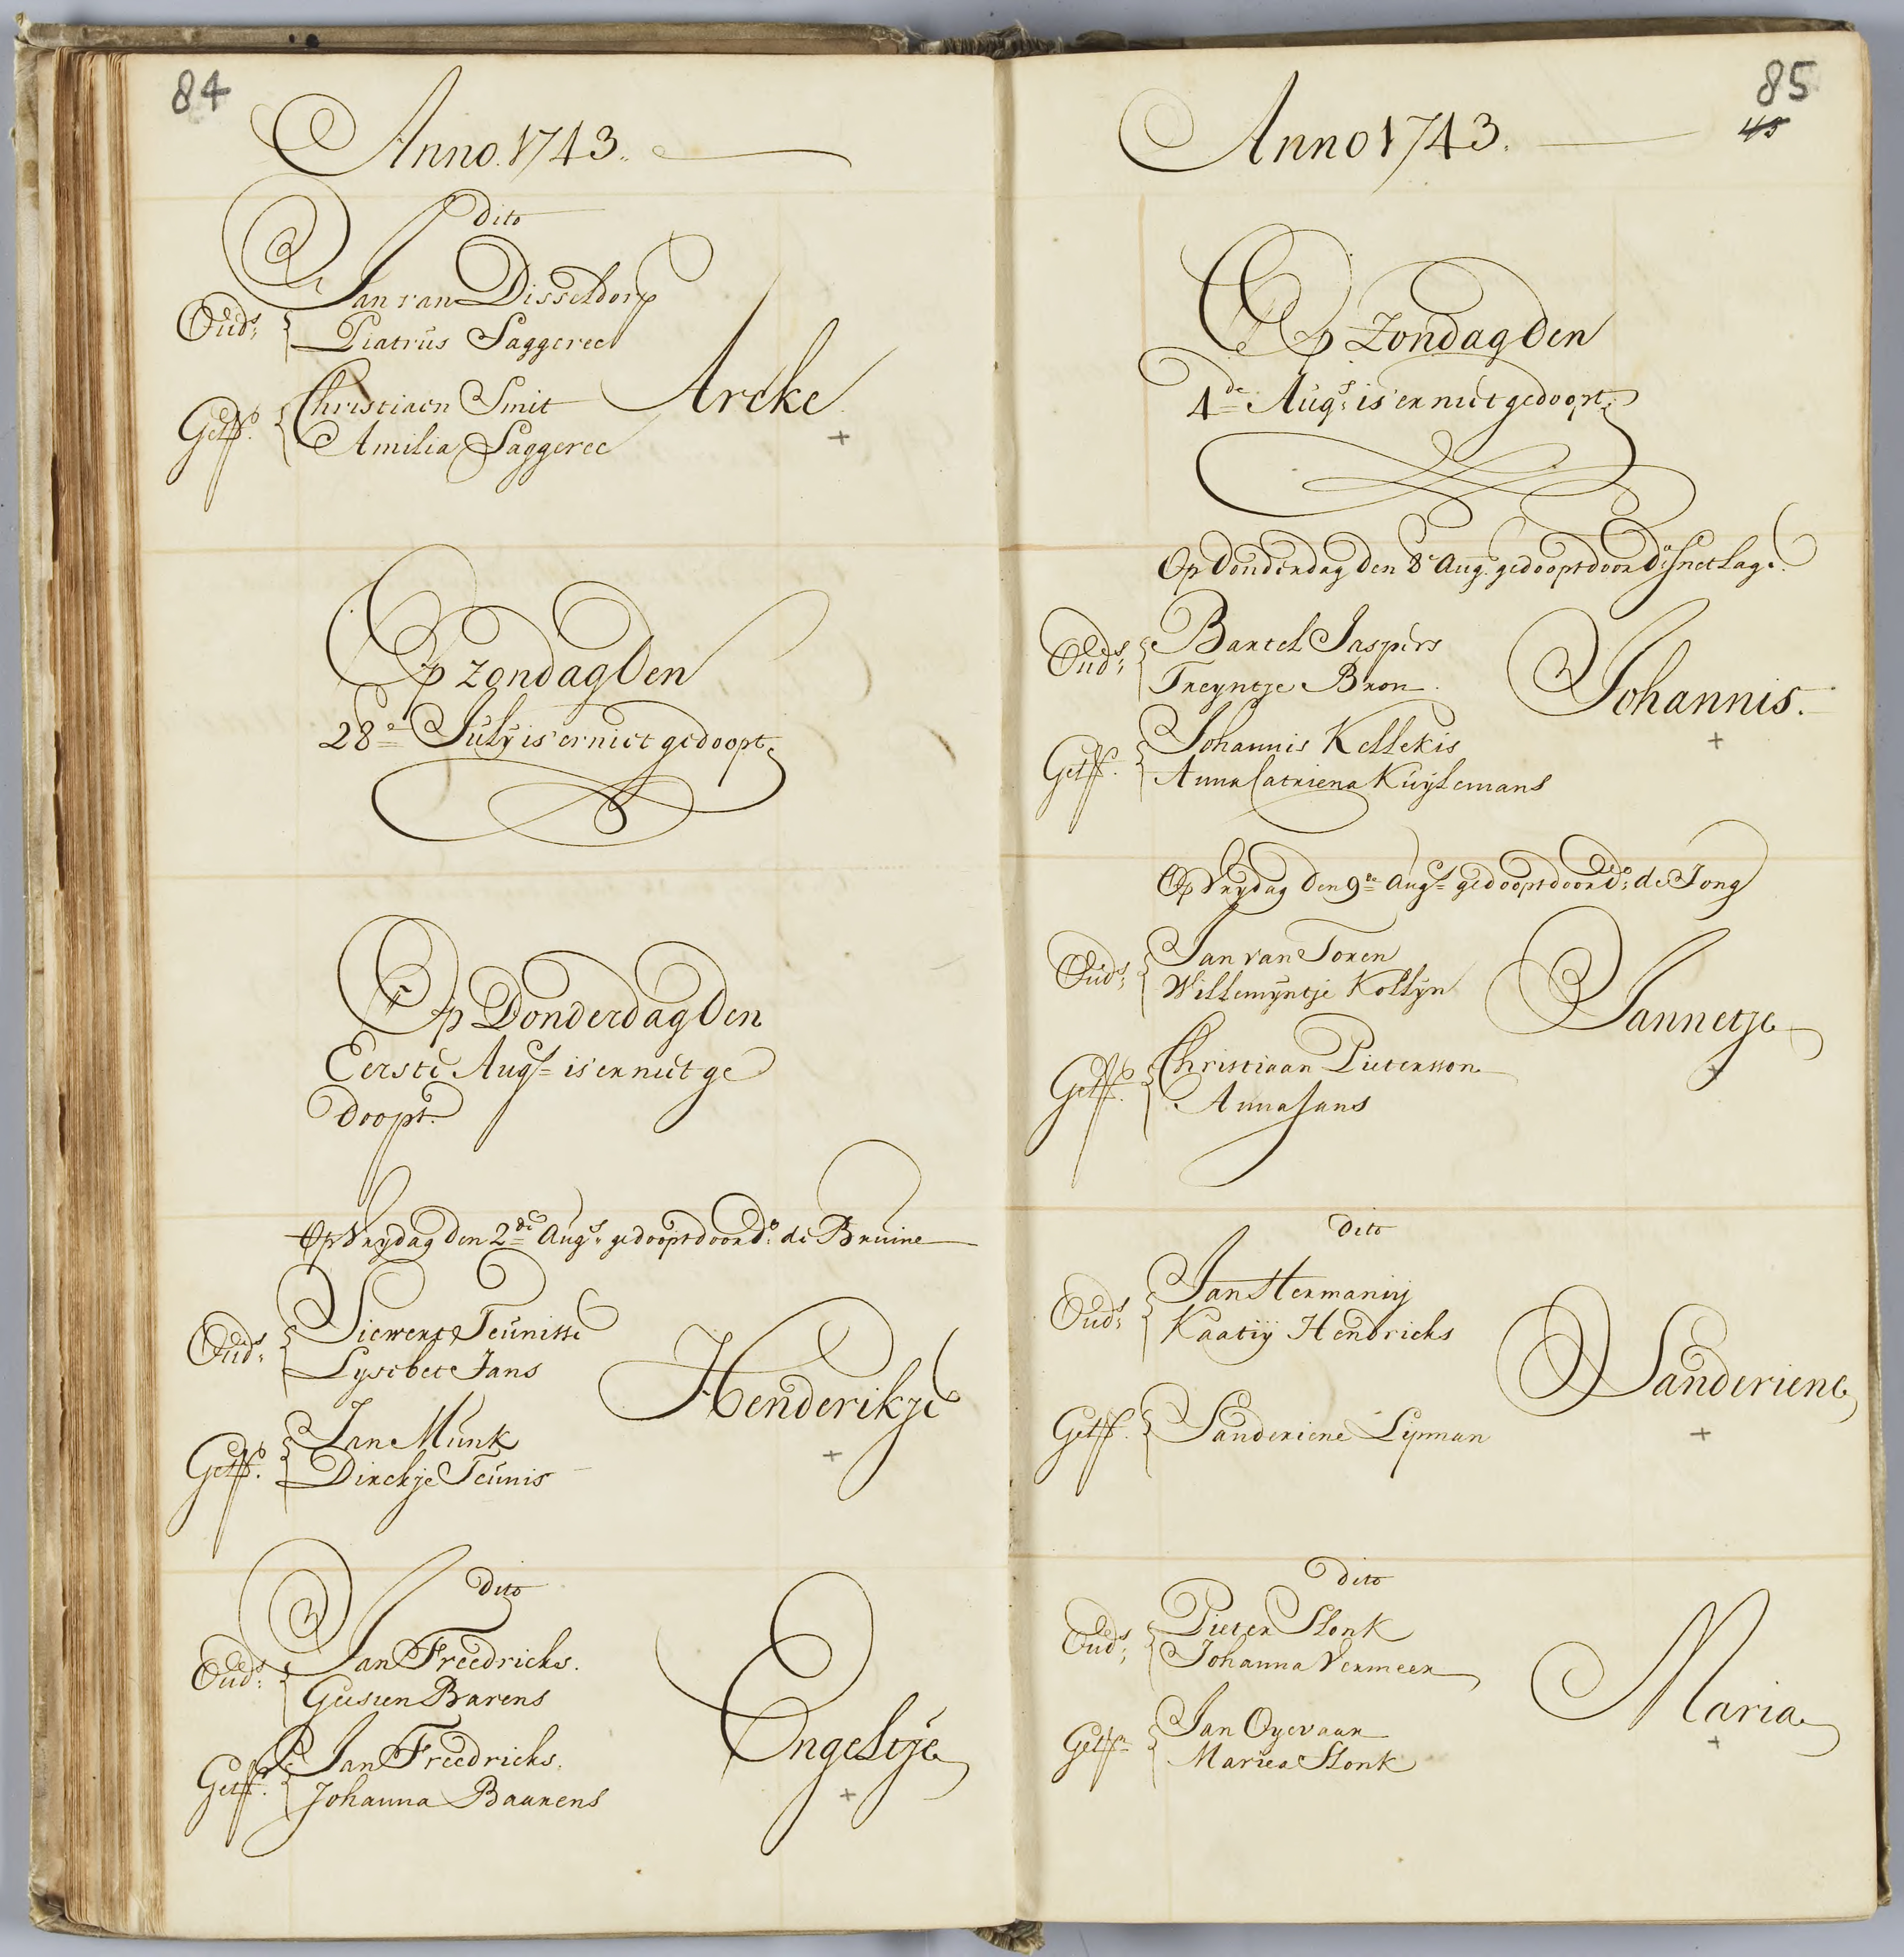 84
Anno. 1743.
dito
Ouds: Jan van Disseldorp
Piatrus Saggeree
Arcke
Getß. Christiaen Smit
Amilia Saggeree
Op zondag Den
28e July is er niet gedoopt
Op Donderdag Den
Eerste Augs is er niet ge
doopt.
Op Vrydag den 2de Augs gedoopt door ds: de Bruine
Ouds: Siewert Teunisse
Lysebet Jans
Henderikje
Getß. Jan Munk
Dirckje Teunis
dito
Ouds: Jan Freedricks.
Geesien Barens
Engeltje
Getß. Jan Freedricks.
Johanna Baarens
85
45
Anno 1743.
Op zondag Den
4de Augs: is er niet gedoopt.
Op Donderdag den 8e Aug. gedoopt door Ds Snetlage.
Ouds: Bartel Jaspers
Treyntje Bron.
Johannis.
Getß. Johannis Kellekis
Anna Catriena Kuylemans
Op Vrydag den 9de Augs gedoopt door ds: de Jong
Ouds: Jan van Toren
Willemyntje Kollyn
Jannetje
Getß. Christiaan Pietersson
Anna Jans
dito
Ouds: Jan Hermanij
Kaatiy Hendricks
Sanderiene
Getß. Sanderiene Lipman
dito
Ouds: Pieter Slonk
Johanna Vermeer
Maria
Getß Jan Oyevaar
Mariea Slonk